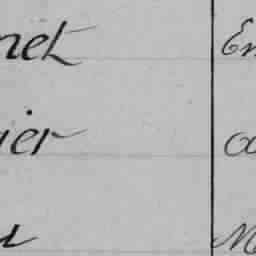 net En
ier
u M